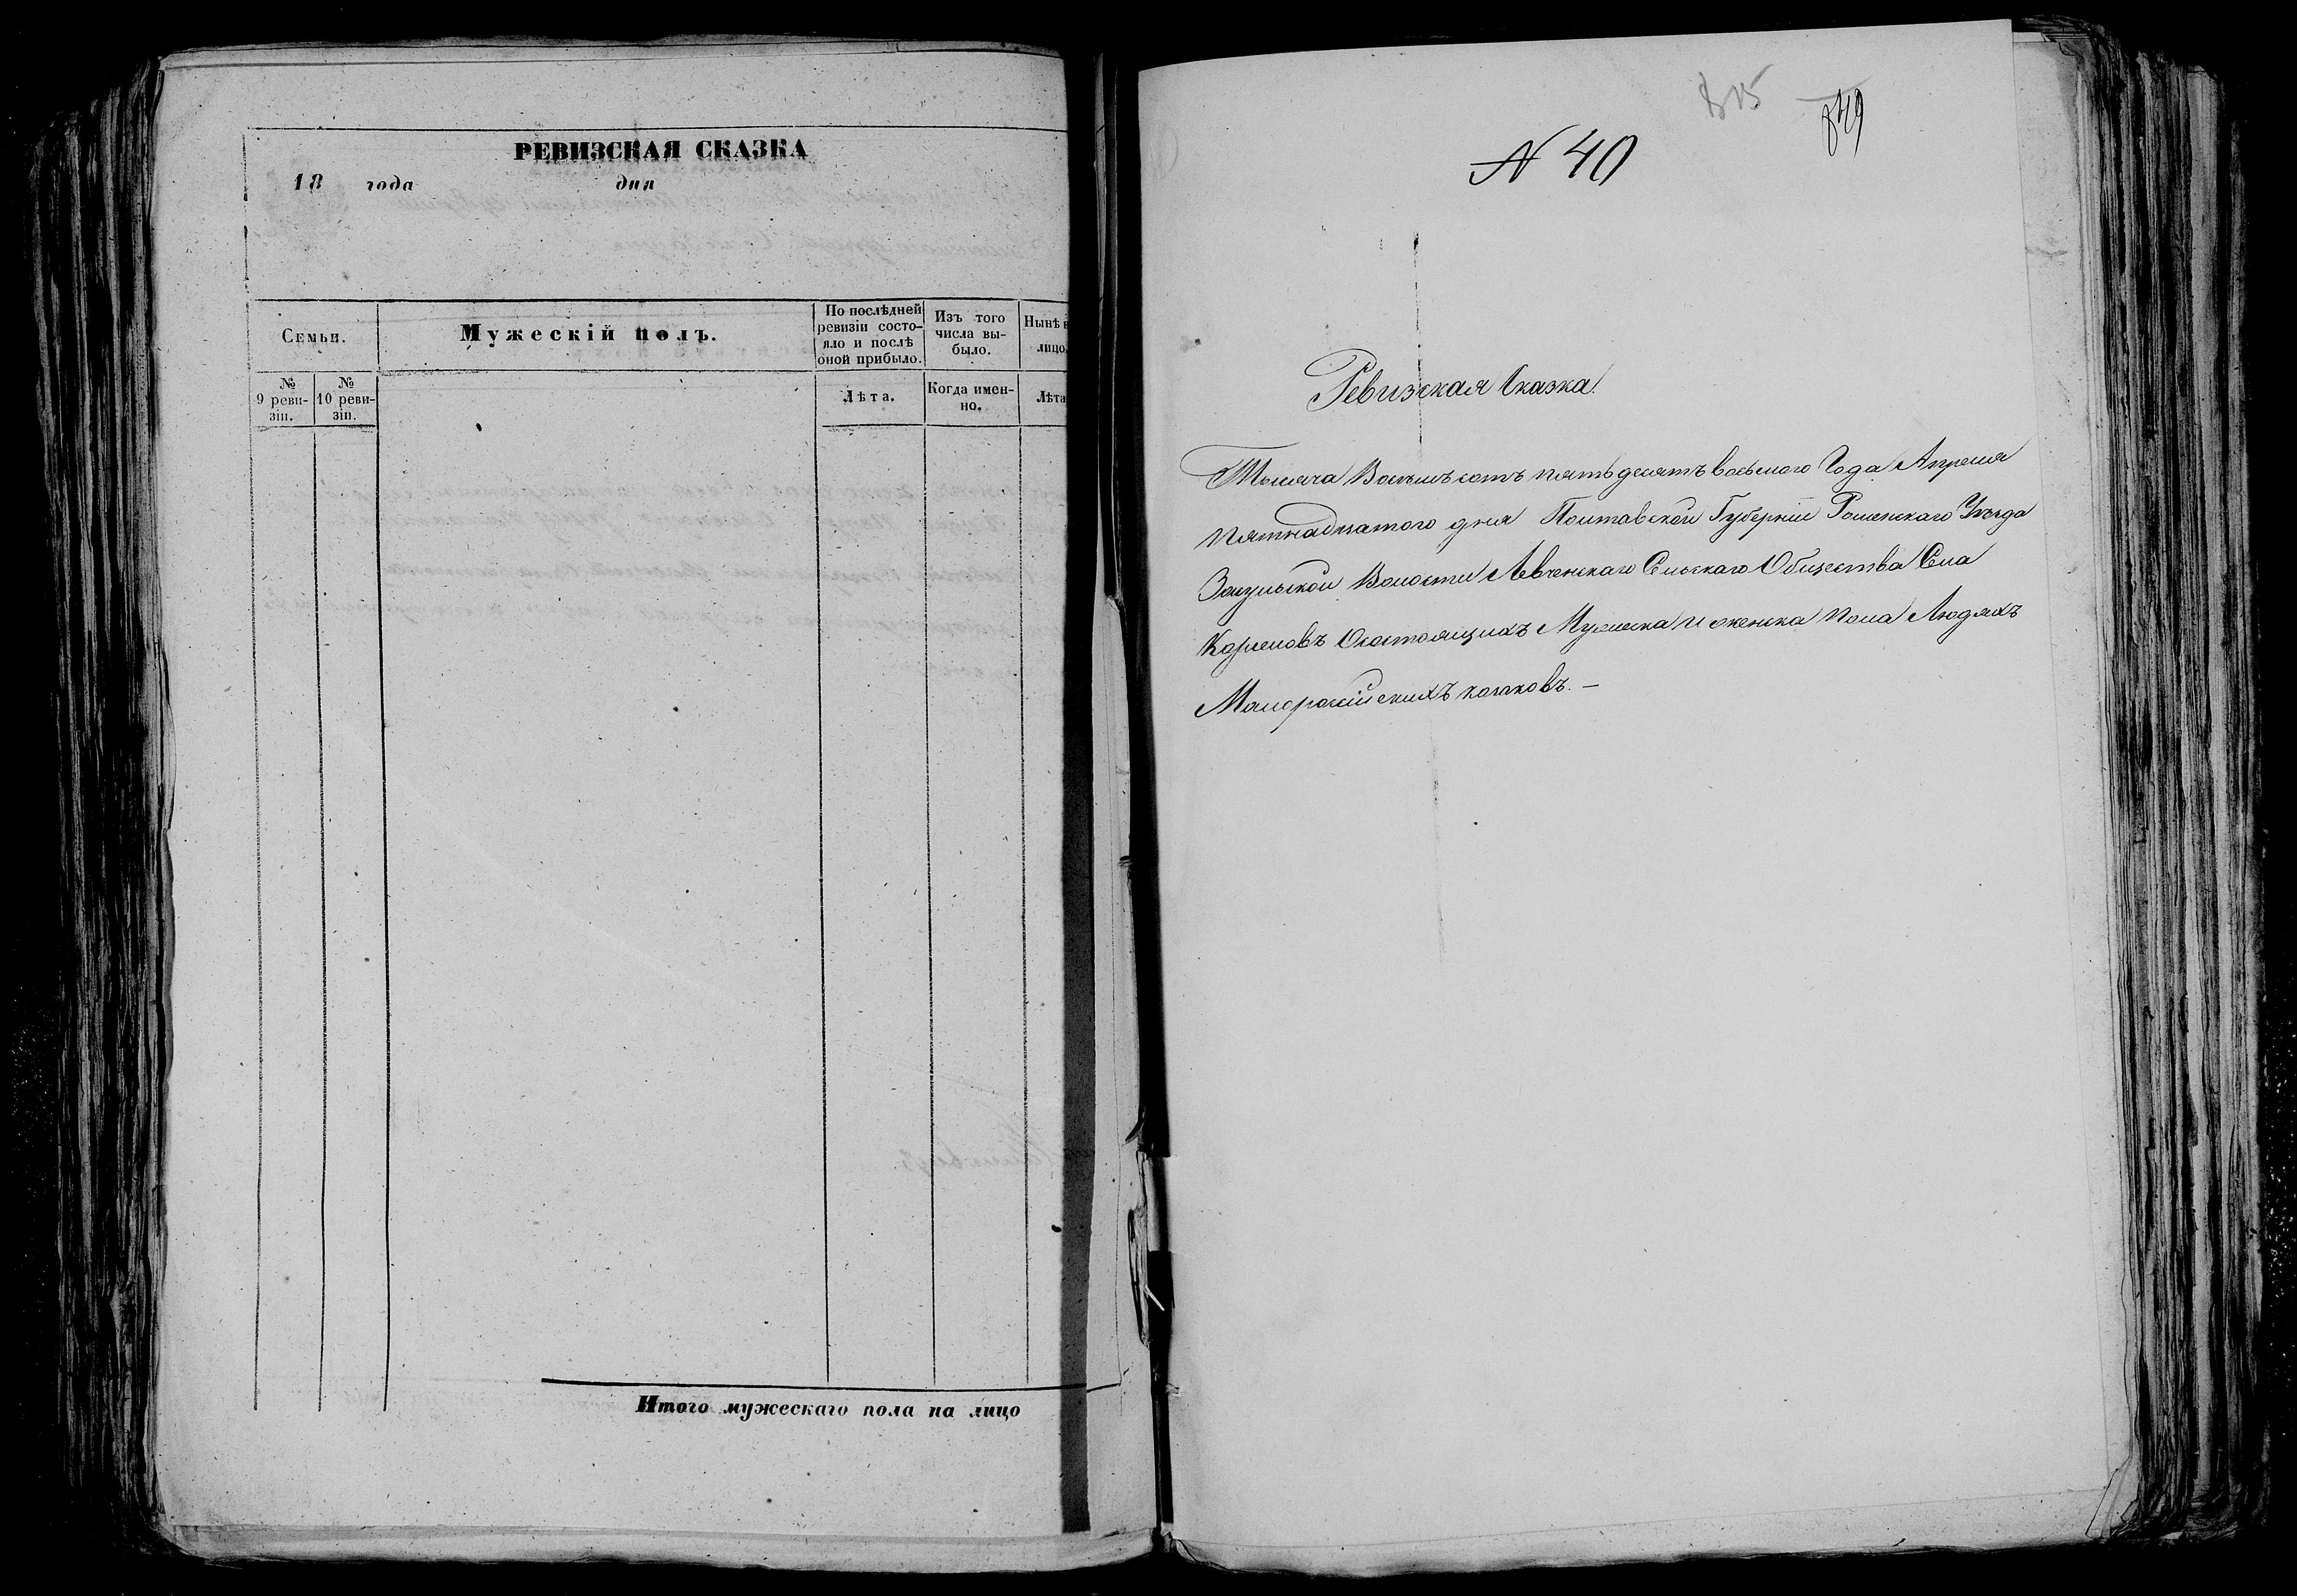 РЕВИЗСКАЯ СКАЗКА
18 года дня
Семьи.
Мужескій полъ.
По послѣдней ревизіи состо-
яло и послѣ
оной прибыло.
Изъ того
числа вы-
было.
Нынѣ
лицо
№
9 реви-
зіи.
№
10 реви-
зіи.
Лѣта.
Когда имен-
но.
Лѣта
Итого мужескаго пола на лицо
849
N 40
Ревизская Сказка.
Тысяча Восемьсотъ пятьдесятъ восьмого Года Апреля
пятнадцатого дня Полтавской Губерніи Роменскаго Уезда
Засульской Волости Левченскаго Сельскаго Общества Села
Состоящихъ Мужеска и женска пола Людяхъ
Малоросійскихъ козаковъ. —